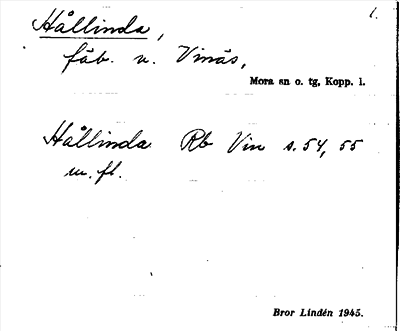 1.
Hållinda,
fäb. u. Vinäs,
Mora sn o. tg, Kopp. l.
Hållinda Rb Vin s. 54, 55
m. fl.
Bror Lindén 1945.